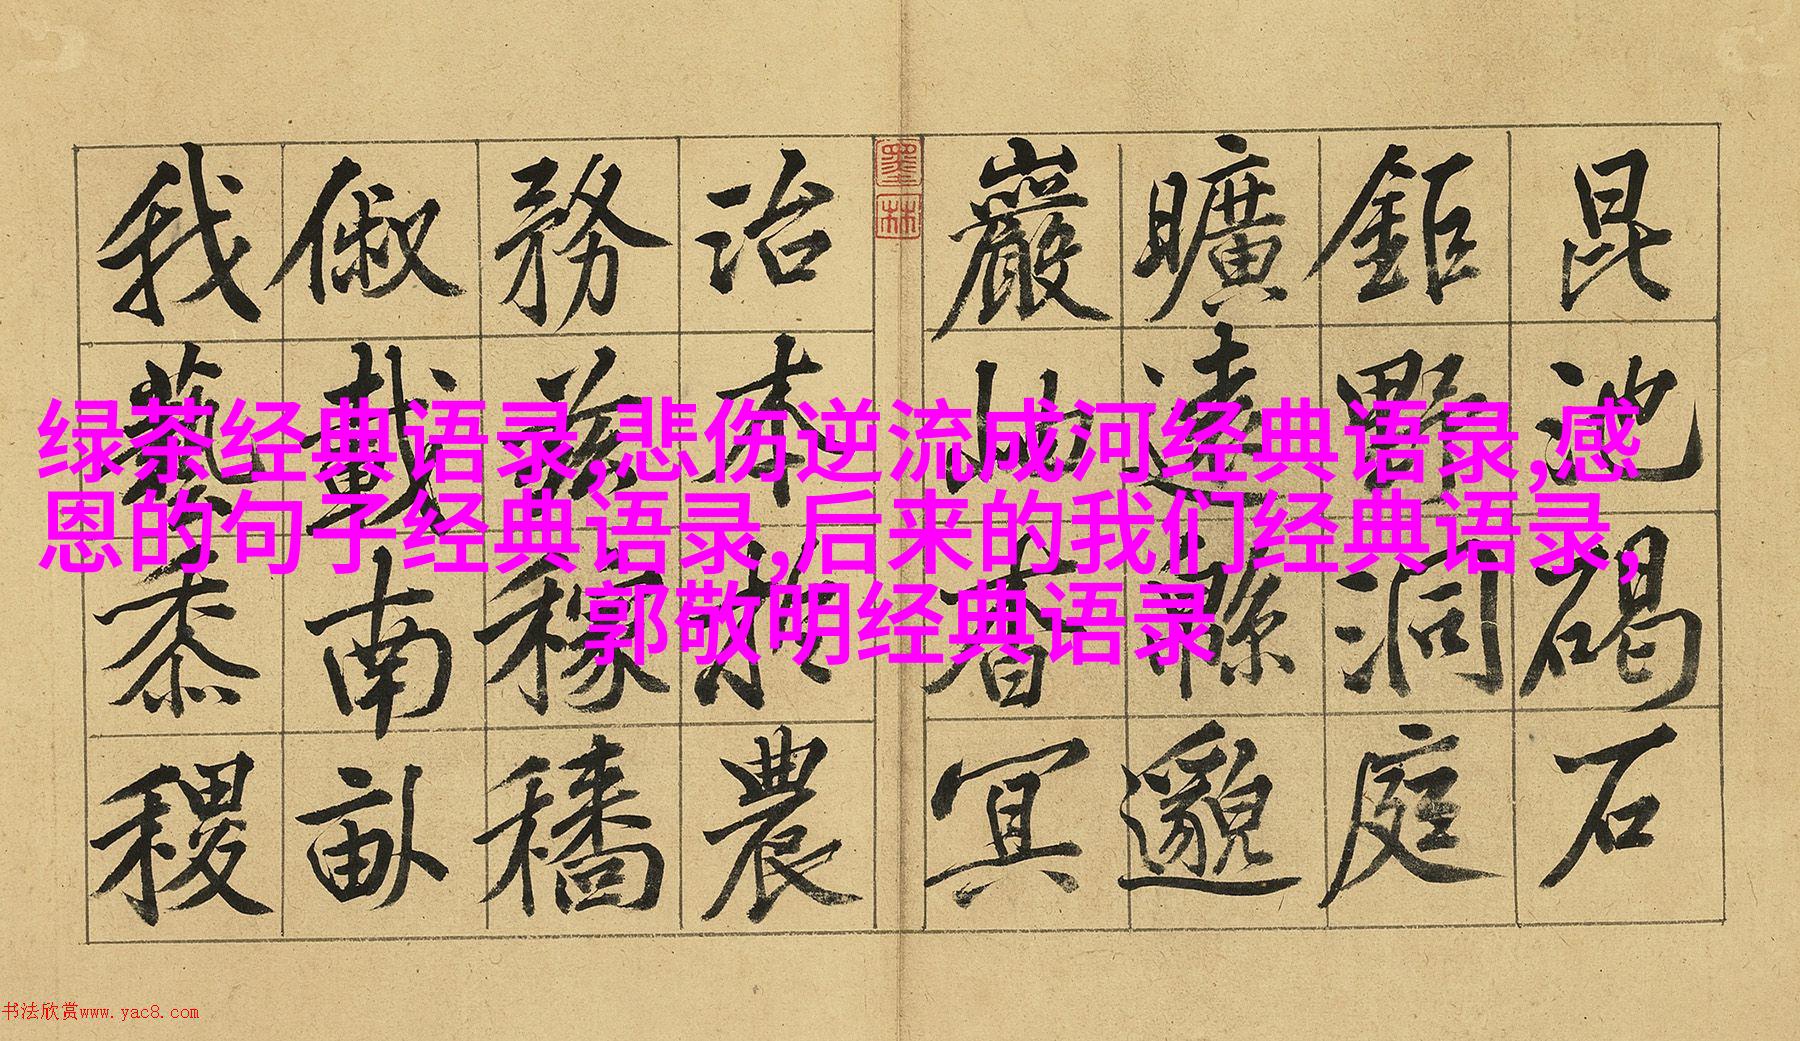 昆池碣石
鉅野洞庭
曠遠緜邈
巖岫杳冥
墨林
治本於農
務茲稼穡
俶載南畝
我藝黍稷
绿茶经典语录,悲伤逆流成河经典语录,感
恩的句子经典语录,后来的我们经典语录,
郭敬明经典语录
书法欣赏www.yac8.com